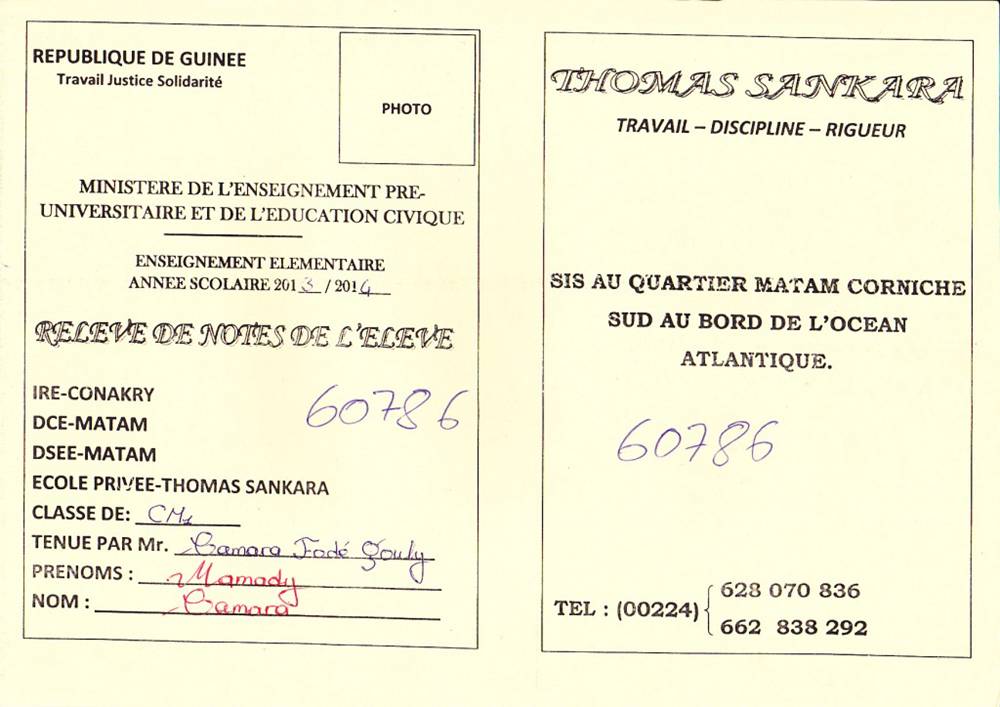 REPUBLIQUE DE GUINEE
Travail Justice Solidarité
PHOTO
MINISTERE DE L'ENSEIGNEMENT PRE-
UNIVERSITAIRE ET DE L'EDUCATION CIVIQUE
ENSEIGNEMENT ELEMENTAIRE
ANNEE SCOLAIRE 2013 / 2014
RELEVE DE NOTES DE L'ELEVE
IRE-CONAKRY
60786
DCE-MATAM
DSEE-MATAM
ECOLE PRIVEE-THOMAS SANKARA
CLASSE DE: CM1
TENUE PAR Mr. Camara Fodé Souly
PRENOMS : Mamady
NOM : Camara
THOMAS SANKARA
TRAVAIL – DISCIPLINE – RIGUEUR
SIS AU QUARTIER MATAM CORNICHE
SUD AU BORD DE L'OCEAN
ATLANTIQUE.
60786
TEL : (00224)
628 070 836
662 838 292